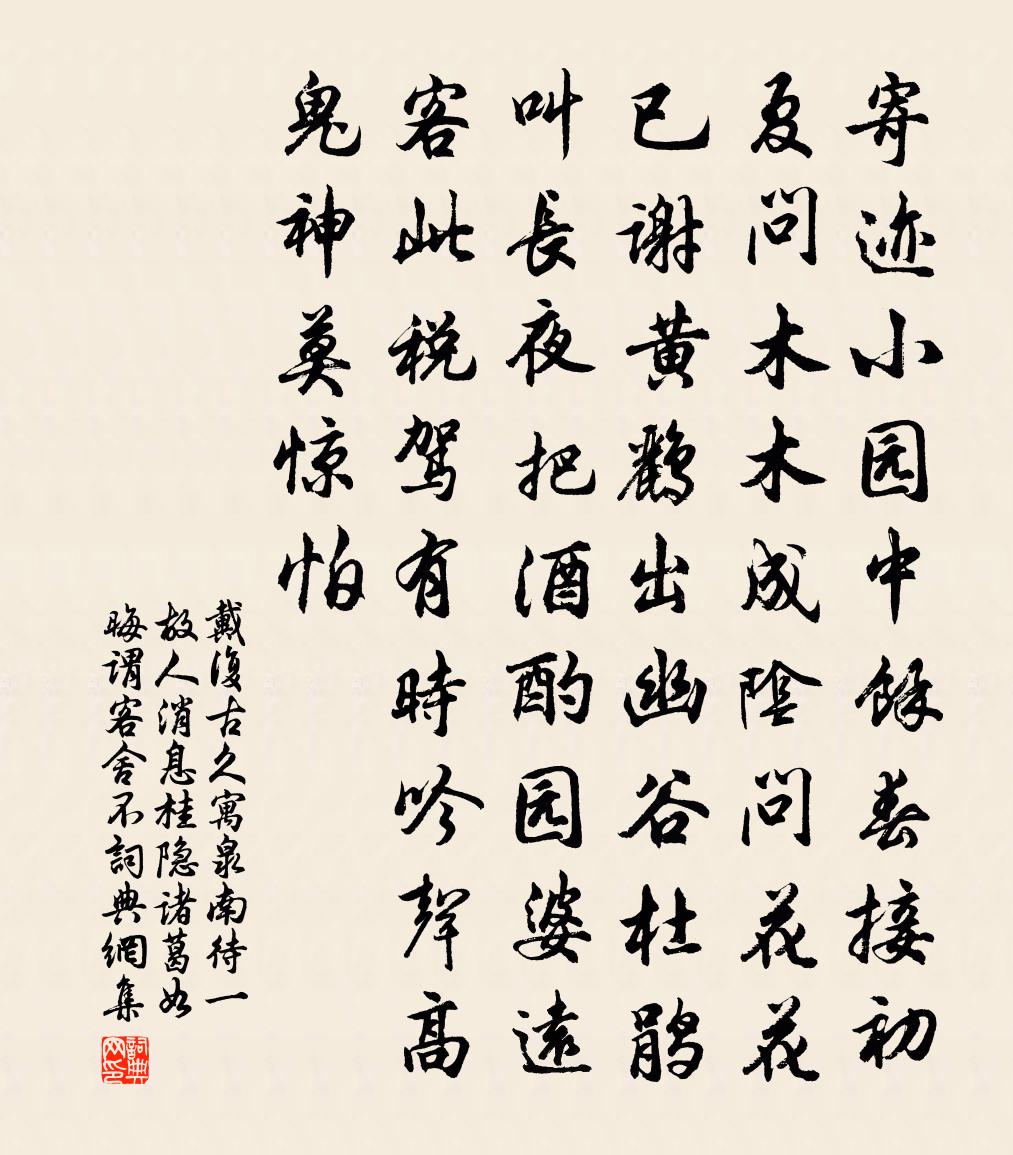 寄迹小园中餘春接初
夏问木木成陰问花花
已谢黄鹂出幽谷杜鹃
叫長夜把酒酌园婆遠
客此税驾有時吟聲高
鬼神莫惊怕
戴復古久寓泉南待一
故人消息桂隐诸葛如
晦谓客舍不詞典網集
詞典
网印